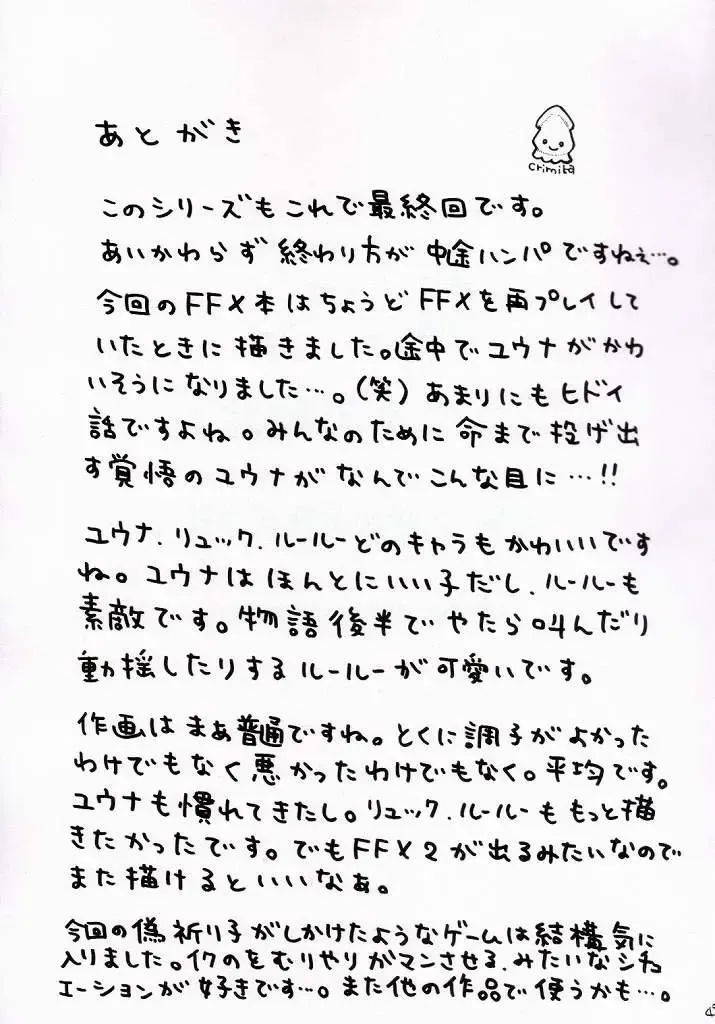 あとがき
crimita
このシリーズもこれで最終回です。
あいかわらず終わり方が中途ハンパですねぇ…。
今回のFFX本はちょうどFFXを再プレイして
いたときに描きました。途中でユウナがかわ
いそうになりました…。(笑)あまりにもヒドイ
話ですよね。みんなのために命まで投げ出
す覚悟のユウナがなんでこんな目に…!!
ユウナ.リュック.ルールーどのキャラもかわいいです
ね。ユウナはほんとにいい子だし.ルールーも
素敵です。物語後半でやたら叫んだり
動揺したりするルールーが可愛いです。
作画はまあ普通ですね。とくに調子がよかった
わけでもなく悪かったわけでもなく。平均です。
ユウナも慣れてきたし。リュック.ルールーももっと描
きたかったです。でもFFX2が出るみたいなので
また描けるといいなぁ。
今回の偽祈り子がしかけたようなゲームは結構気に
入りました。イクのをむりやりガマンさせる.みたいなシチュ
エーションが好きです…。また他の作品で使うかも…。